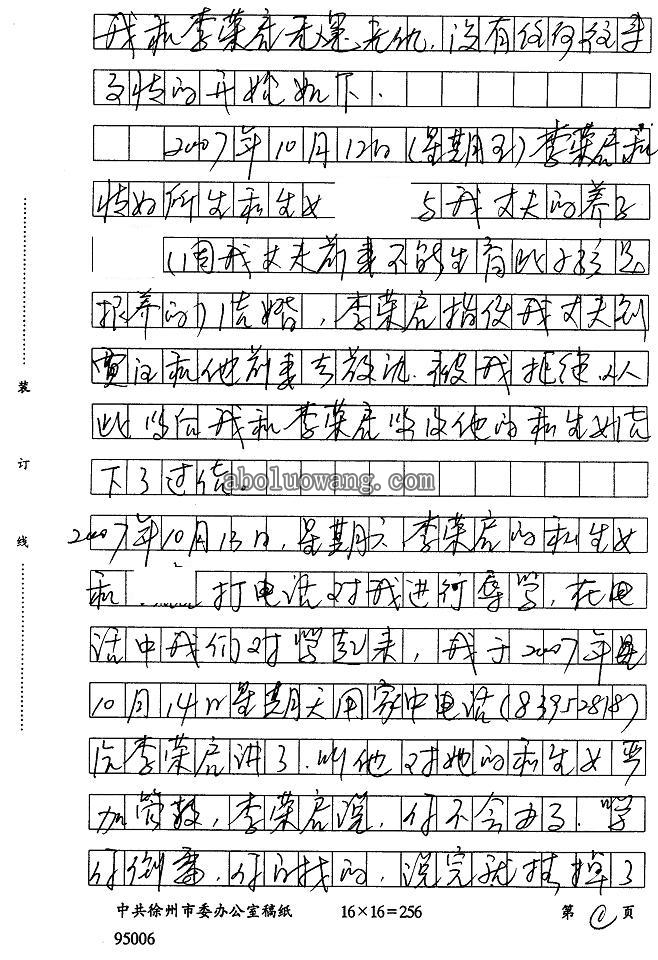 我和李荣启无冤无仇,没有任何往来
事情的开始如下.
2007年10月12日(星期五)李荣启和
情妇所生私生女 与我丈夫的养子
(因我丈夫前妻不能生育此孩是
报养的)结婚,李荣启指使我丈夫到
贾汪和他前妻去放礼.被我拒绝.从
此以后我和李荣启以及他的私生女结
下了过结。
aboluowang.com
2007年10月13日,星期六李荣启的私生女
和 打电话对我进行辱骂,在电
话中我们对骂起来,我于2007年
10月14日星期天用家中电话(83952818)
向李荣启讲了.叫他对她的私生女严
加管教,李荣启说,你不会办了.骂
你倒霉.你的找的,说完就挂掉了
装
订
线
中共徐州市委办公室稿纸 16×16=256 第 1 页
95006